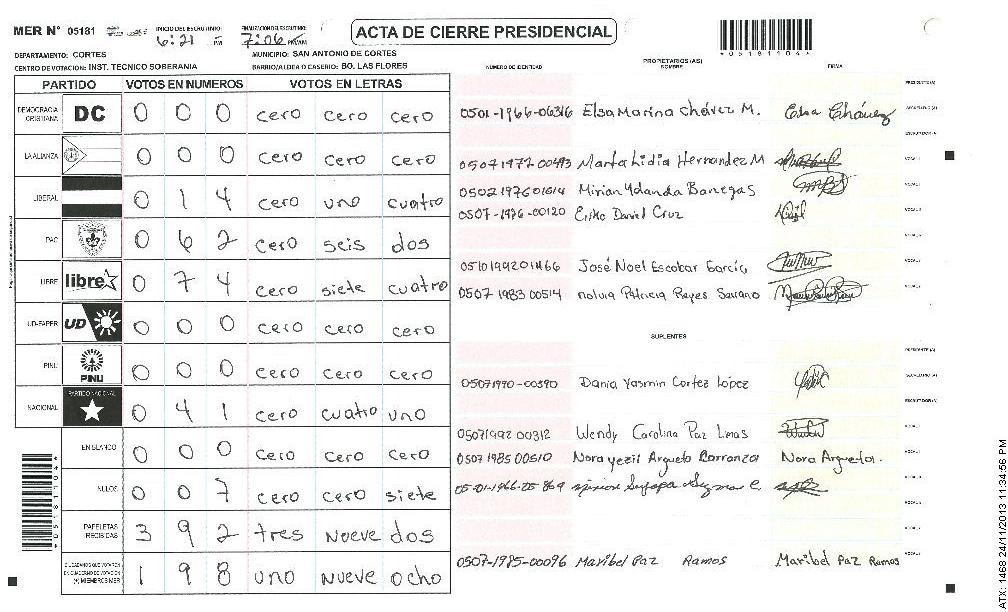 MER N° 05181 INICIO DEL ESCRUTINIO: 6:21 PM FINALIZACION DEL ESCRUTINIO: 7:06 PM/AM
ACTA DE CIERRE PRESIDENCIAL
*05181104*
DEPARTAMENTO: CORTES MUNICIPIO: SAN ANTONIO DE CORTES
CENTRO DE VOTACION: INST. TECNICO SOBERANIA BARRIO/ALDEA O CASERIO: BO. LAS FLORES
PARTIDO VOTOS EN NUMEROS VOTOS EN LETRAS
DEMOCRACIA CRISTIANA DC 0 0 0 cero cero cero
LA ALIANZA 0 0 0 cero cero cero
LIBERAL 0 1 4 cero uno cuatro
PAC 0 6 2 cero seis dos
LIBRE libre 0 7 4 cero siete cuatro
UD-FAPER UD 0 0 0 cero cero cero
PINU PINU 0 0 0 cero cero cero
NACIONAL PARTIDO NACIONAL 0 4 1 cero cuatro uno
EN BLANCO 0 0 0 cero cero cero
NULOS 0 0 7 cero cero siete
PAPELETAS RECIBIDAS 3 9 2 tres nueve dos
CIUDADANOS QUE VOTARON EN CUADERNO DE VOTACION (+) MIEMBROS MER 1 9 8 uno nueve ocho
*05181104*
PROPIETARIOS (AS)
NUMERO DE IDENTIDAD NOMBRE FIRMA
PRESIDENTE (A)
0501-1966-06316 Elsa Marina Chávez M. Elsa Chávez
SECRETARIO (A)
ESCRUTADOR (A)
0507 1972 00493 Marta Lidia Hernandez M
VOCAL I
0502 1976 01614 Mirian Yolanda Banegas
VOCAL II
0507-1976-00120 Eriko David Cruz
VOCAL III
0510199201466 José Noel Escobar García
VOCAL IV
0507 1983 00514 nolvia Patricia Reyes Serrano
VOCAL V
SUPLENTES
PRESIDENTE (A)
05071990-00390 Dania Yasmin Cortez López
SECRETARIO (A)
ESCRUTADOR (A)
05071992 00312 Wendy Carolina Paz Limas
VOCAL I
0507 1985 00510 Nora yezil Argueta Carranza Nora Argueta.
VOCAL II
05-01-1966-05 869
VOCAL III
VOCAL IV
0507-1985-00096 Maribel Paz Ramos Maribel Paz Ramos
VOCAL V
ATX: 1468 24/11/2013 11:34:56 PM